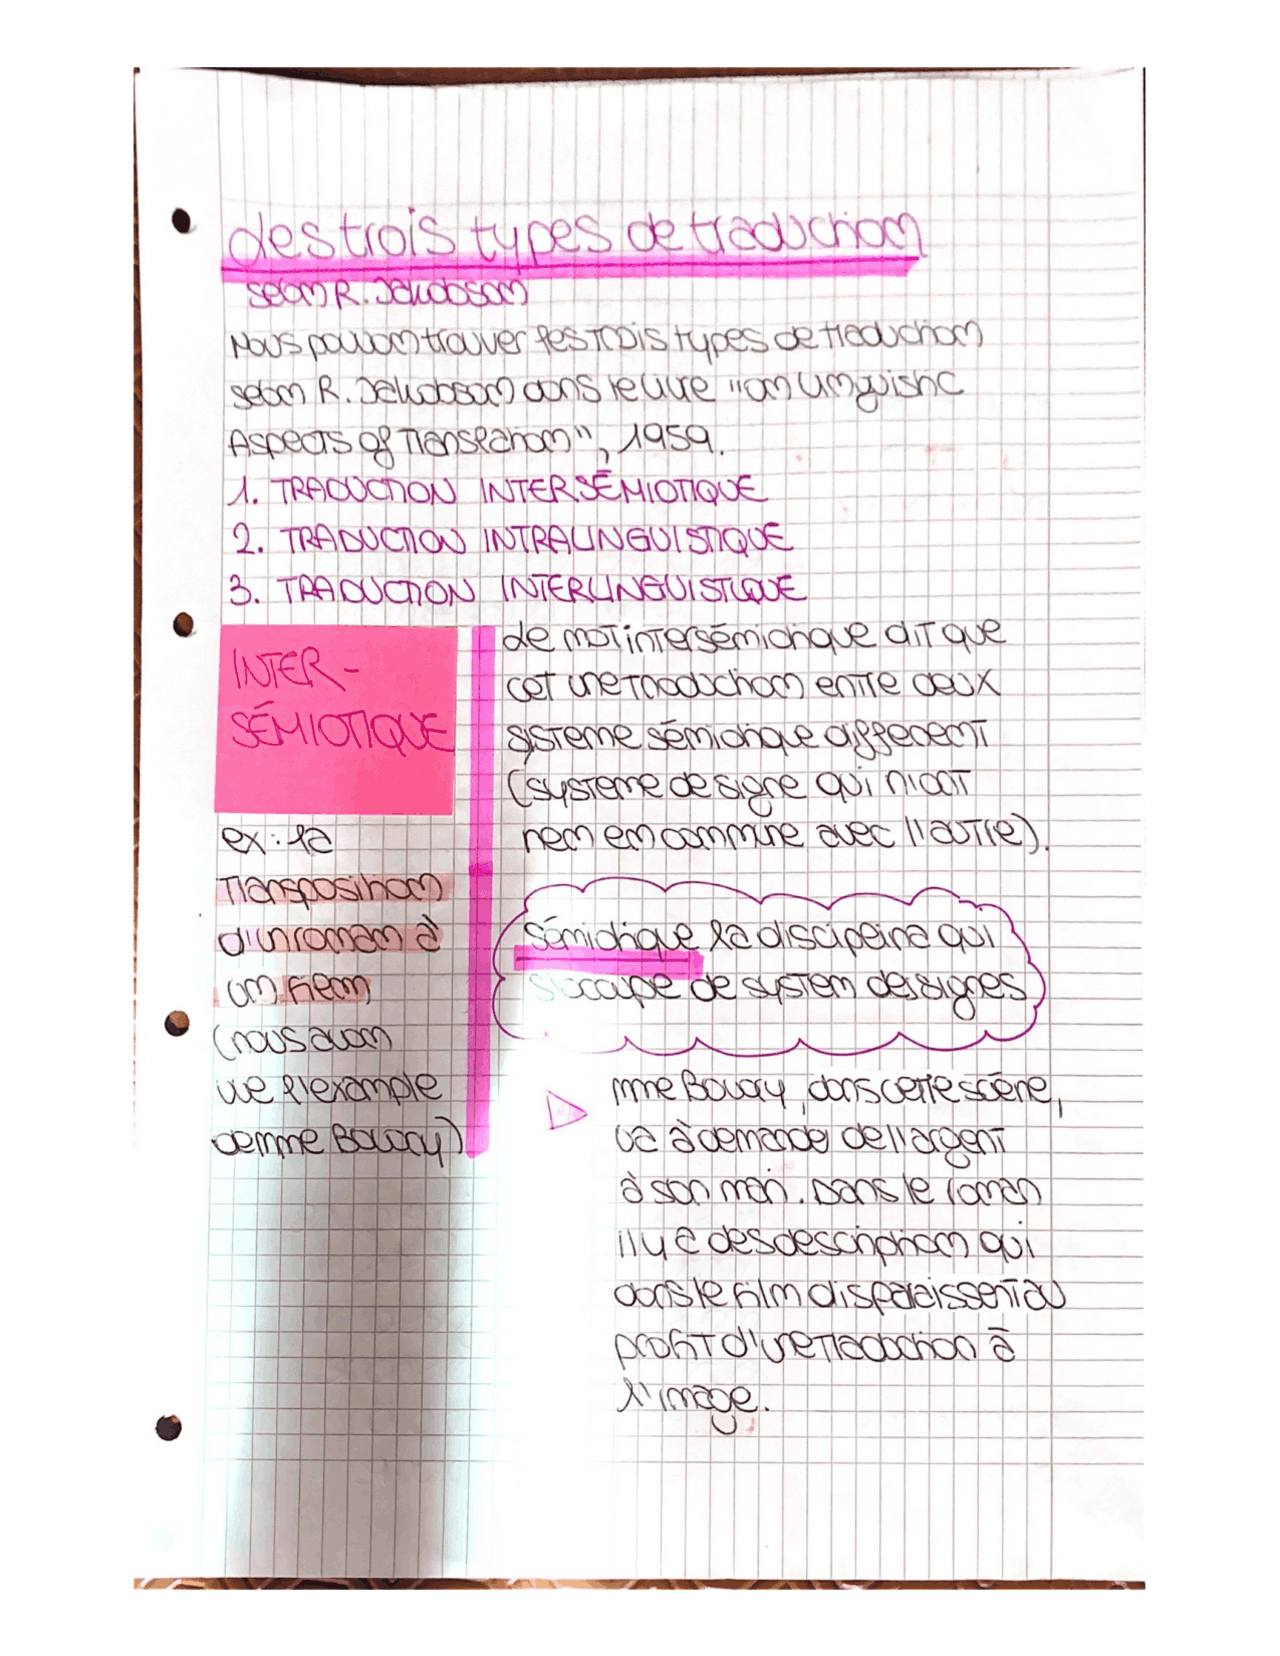 des trois types de traduction
selon R. Jakobson
Nous pouvon trouver les trois types de traduction
selon R. Jakobson dans le livre "on Linguistic
Aspects of Translation", 1959.
1. TRADUCTION INTERSÉMIOTIQUE
2. TRADUCTION INTRALINGUISTIQUE
3. TRADUCTION INTERLINGUISTIQUE
INTER-
SÉMIOTIQUE
le mot intersémiotique dit que
cet une traduction entre deux
sisteme sémiotique different
(systeme de signe qui n'ont
rien en commune avec l'autre).
ex: la
transposition
d'un roman à
un film
(nous avon
vue l'example
de mme Bovary)
Sémiotique la disciplina qui
s'occupe de system des signes
mme Bovary, dans cette scène,
va à demander de l'argent
à son mari. Dans le roman
il y a des description qui
dans le film disparaissent au
profit d'une traduction à
l'image.